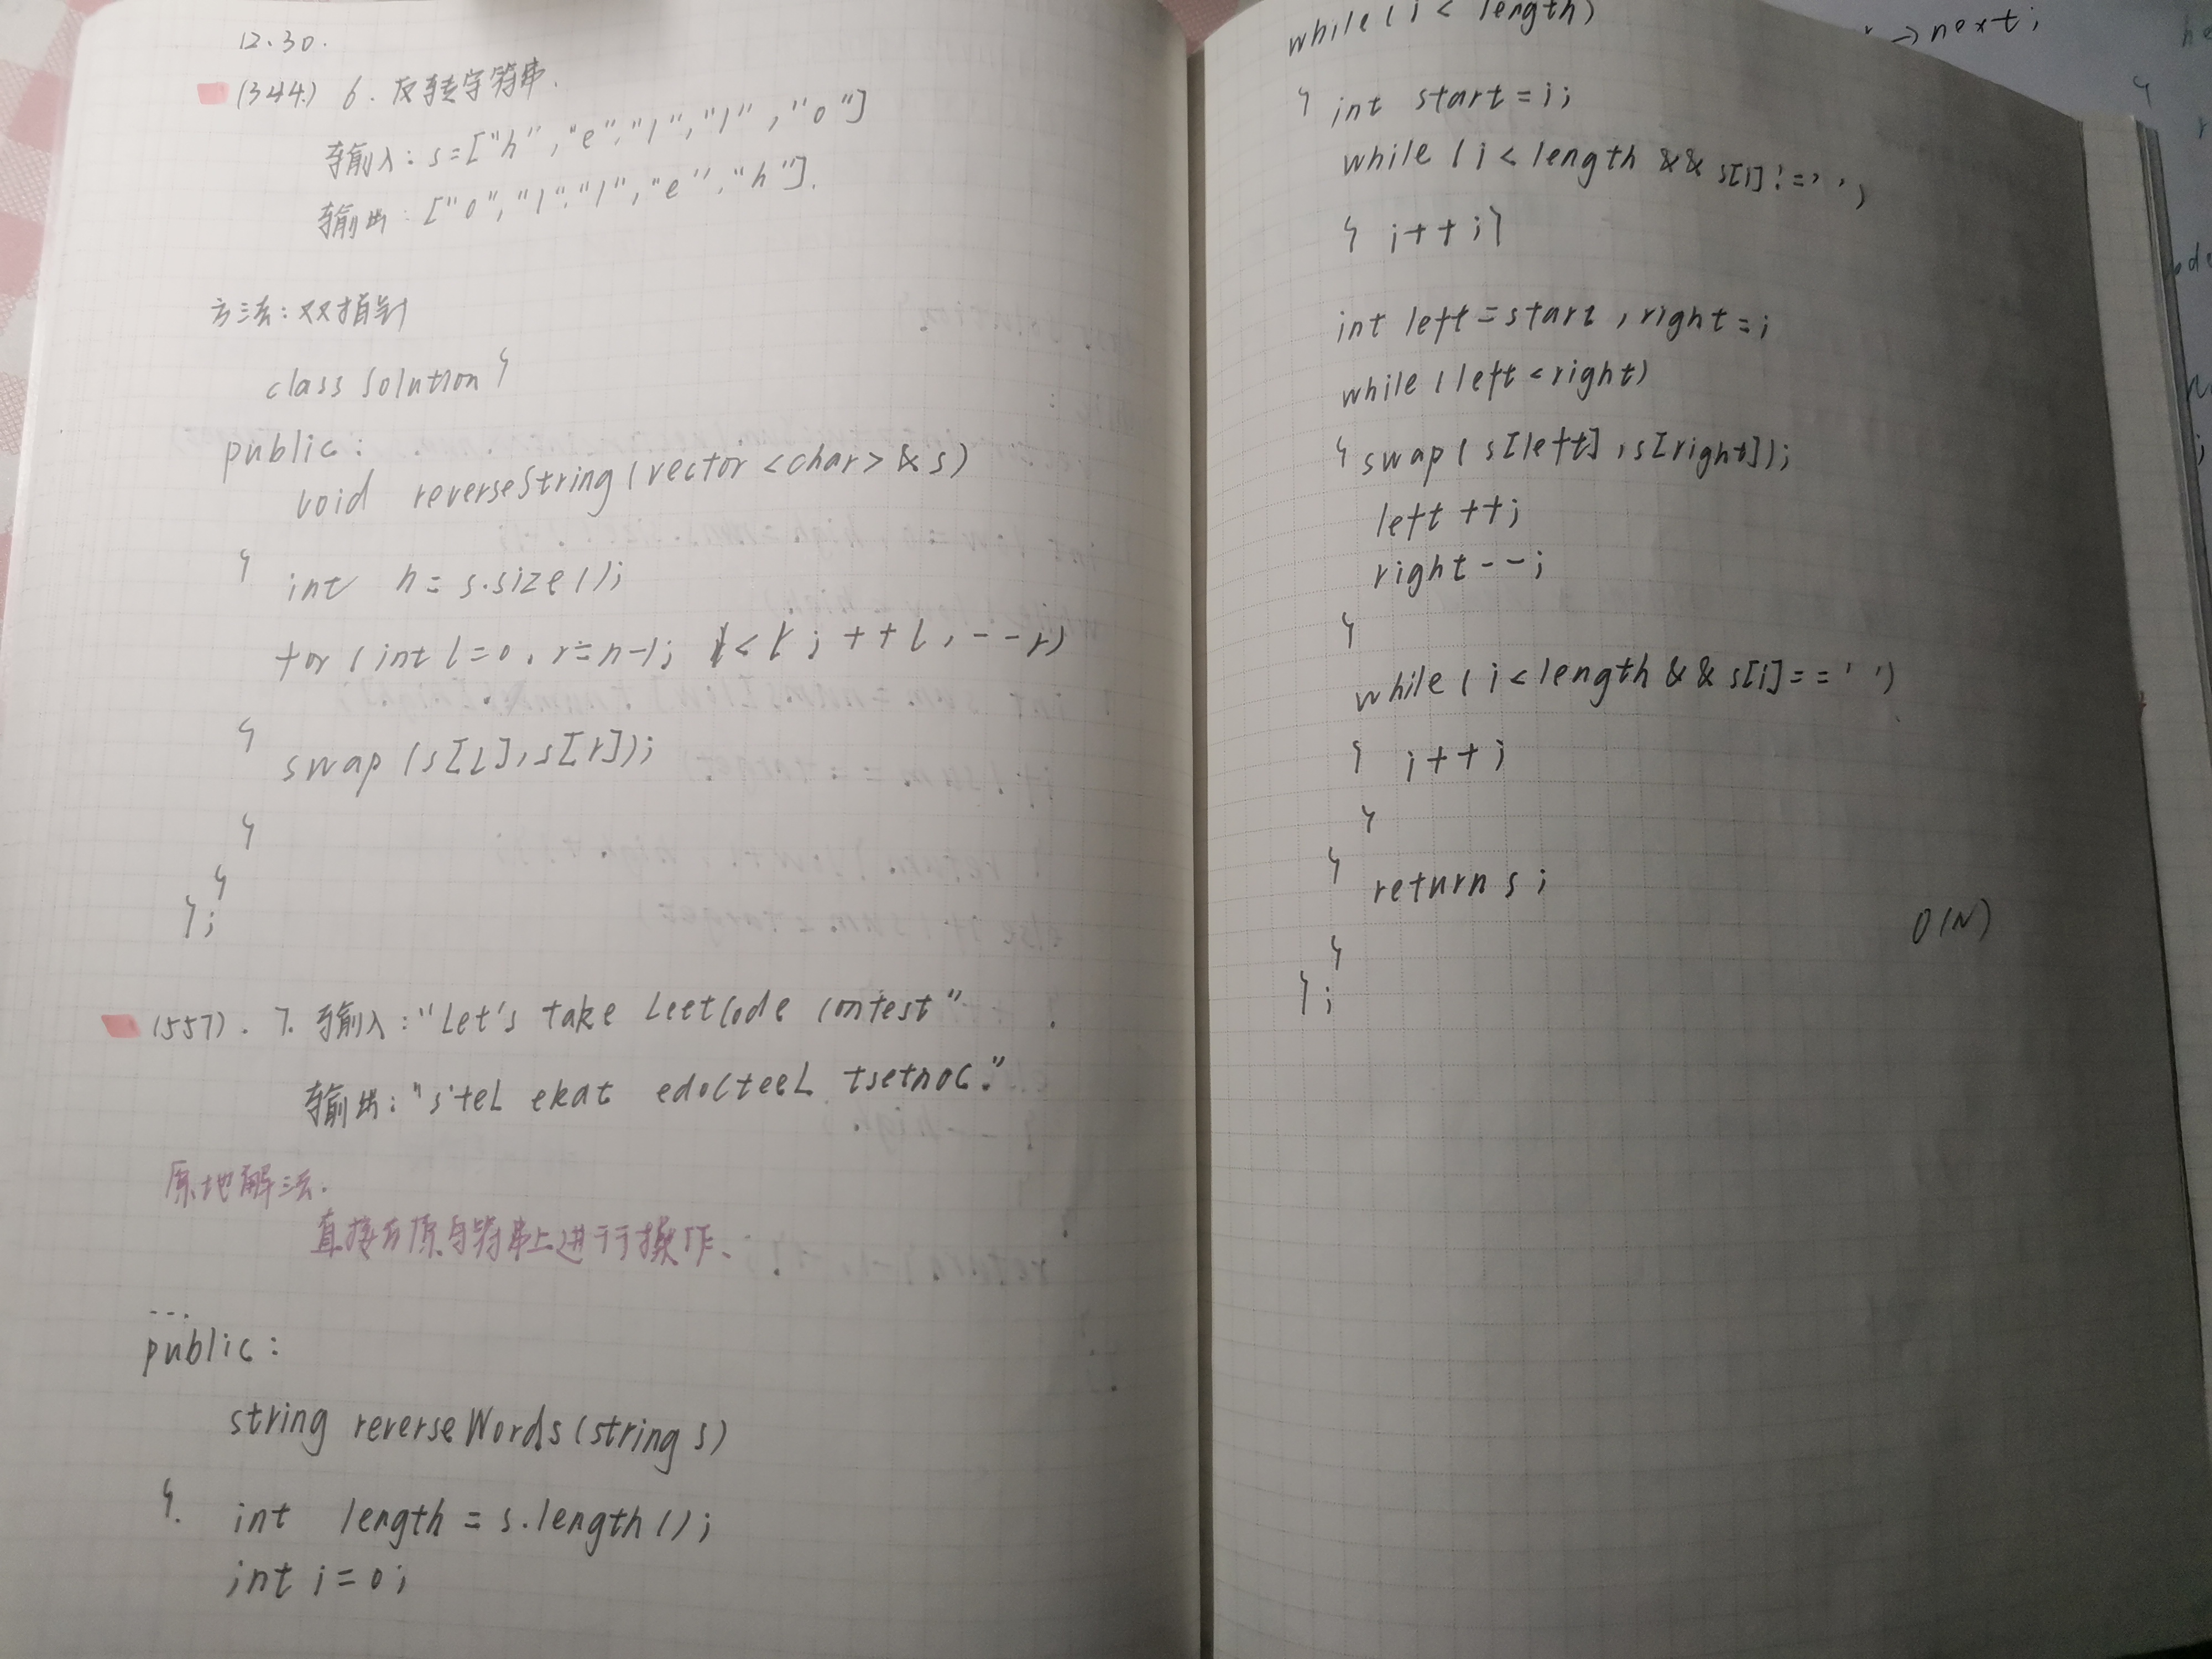 12.30.
(344) 6. 反转字符串.
输入: s=["h","e","l","l","o"]
输出: ["o","l","l","e","h"].
方法: 双指针
class Solution {
public:
void reverseString(vector<char>& s)
{ int n = s.size();
for (int l=0, r=n-1; l<r; ++l, --r)
{ swap(s[l],s[r]);
}
}
};
(557). 7. 输入: "Let's take LeetCode contest"
输出: "s'teL ekat edoCteeL tsetnoc."
原地解法.
直接在原字符串上进行操作、
...
public:
string reverseWords(string s)
{. int length = s.length();
int i=0;
while(i< length)
{ int start=i;
while (i<length && s[i]!=' ')
{ i++;}
int left=start, right=i
while (left<right)
{ swap(s[left],s[right]);
left++;
right--;
}
while(i<length && s[i]==' ')
{ i++;
}
} return s;
O(N)
}
};
->next;